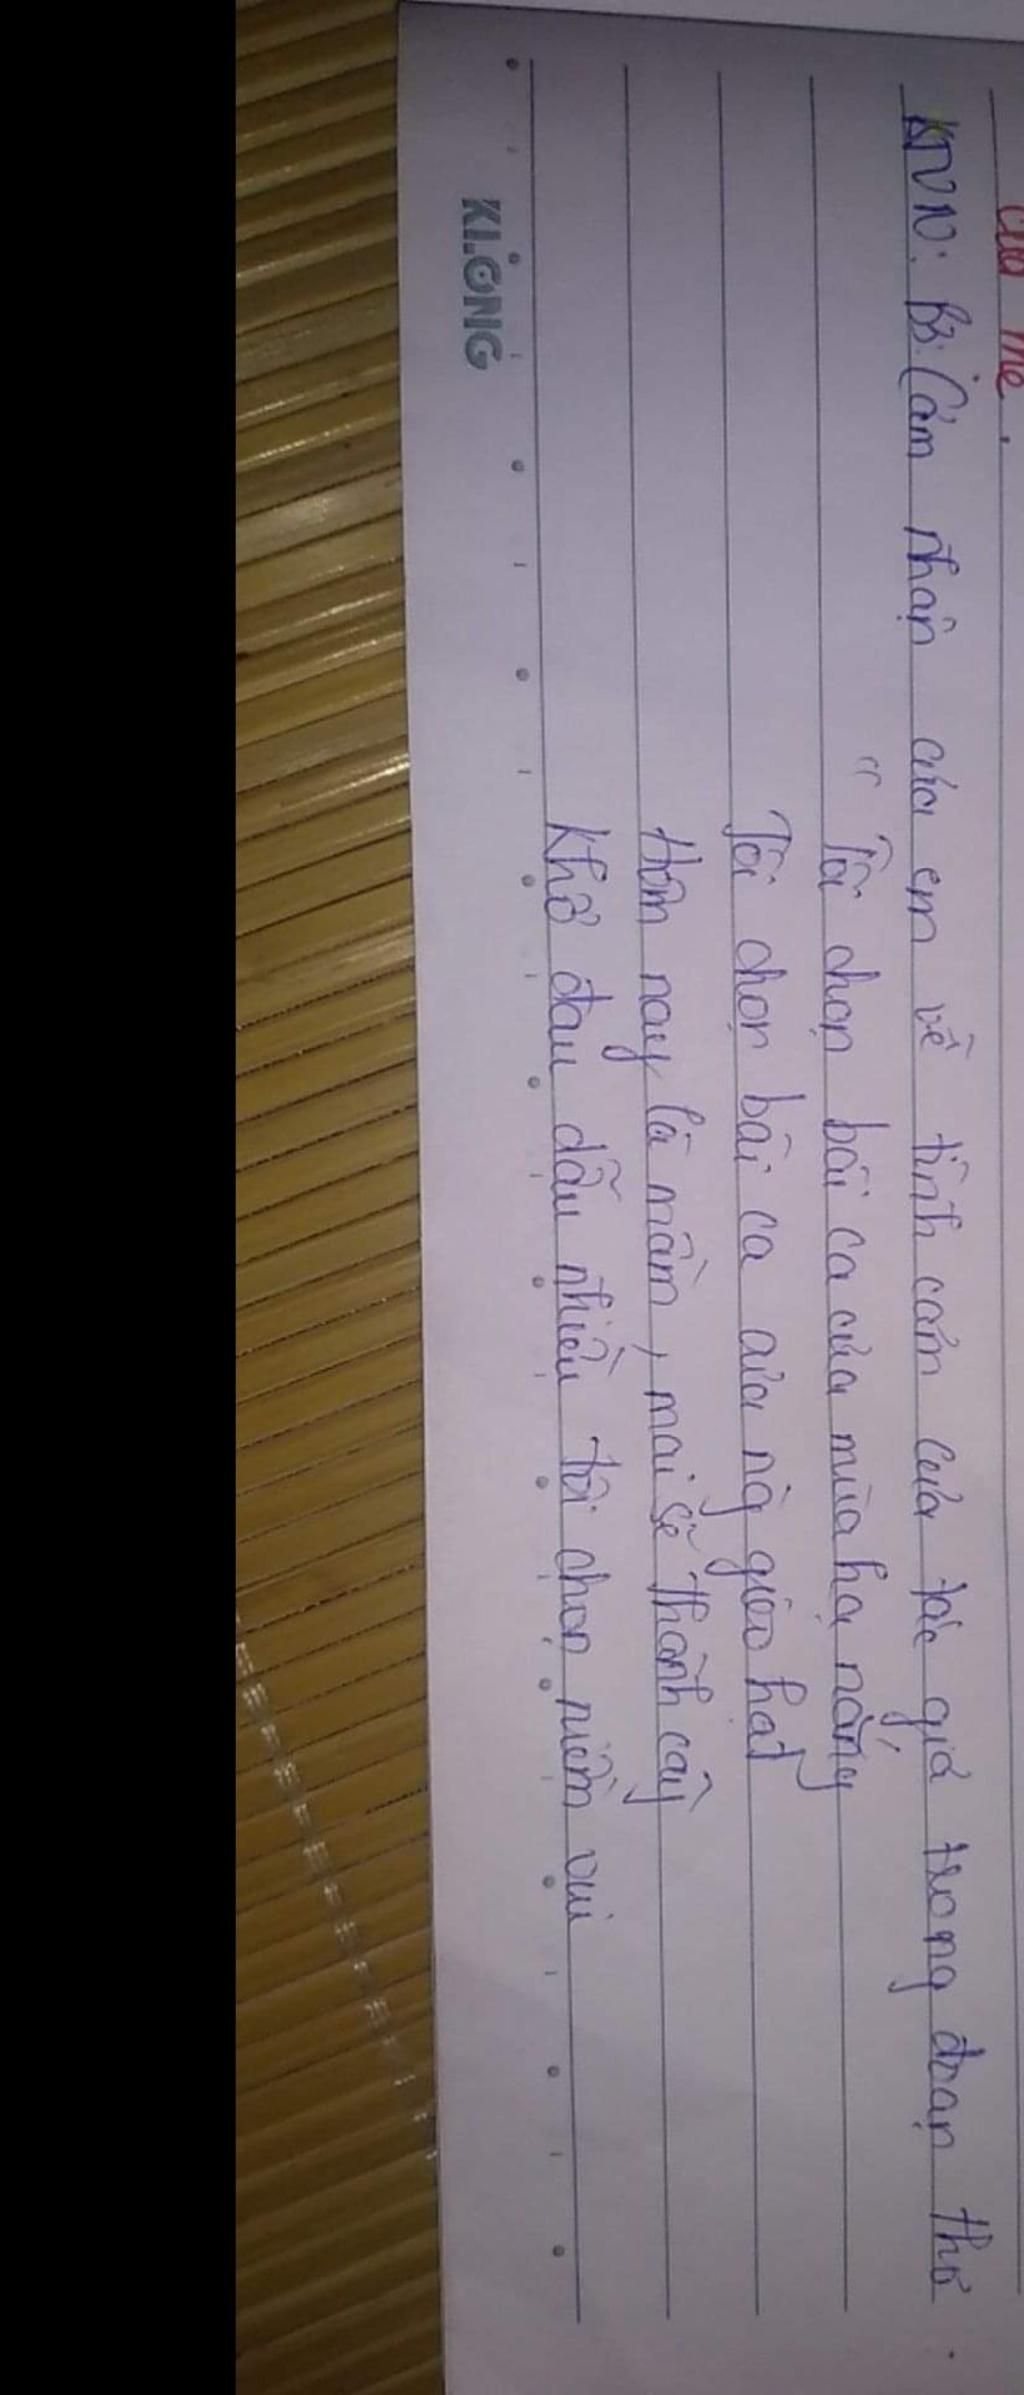 của mẹ.
BTVN: B3: Cảm nhận của em về tình cảm của tác giả trong đoạn thơ
“Tôi chọn bài ca của mùa hạ nắng
Tôi chọn bài ca của ng gieo hạt
Hôm nay là mầm, mai sẽ thành cây
Khổ đau dẫu nhiều tôi chọn niềm vui
KLONG